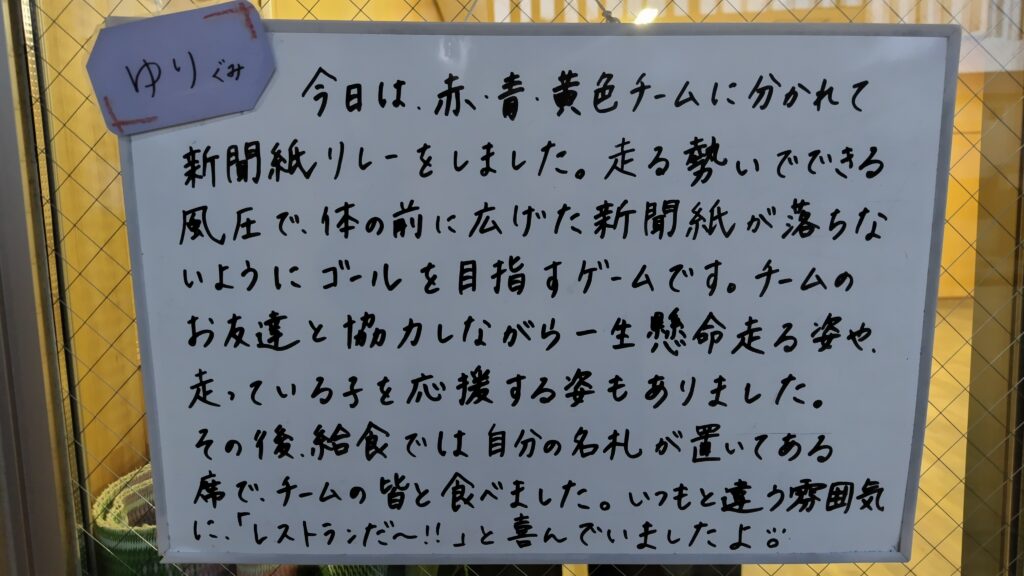 ゆりぐみ
今日は、赤・青・黄色チームに分かれて
新聞紙リレーをしました。走る勢いでできる
風圧で、体の前に広げた新聞紙が落ちな
いようにゴールを目指すゲームです。チームの
お友達と協力しながら一生懸命走る姿や、
走っている子を応援する姿もありました。
その後、給食では自分の名札が置いてある
席で、チームの皆と食べました。いつもと違う雰囲気
に、「レストランだ〜!!」と喜んでいましたよ